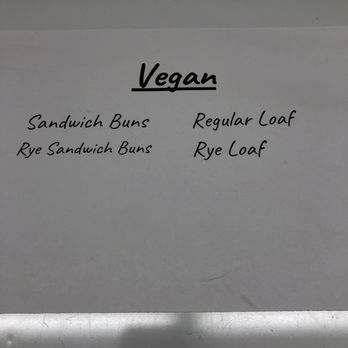 Vegan
Sandwich Buns
Rye Sandwich Buns
Regular Loaf
Rye Loaf